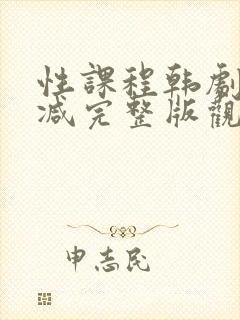 性課程韩劇
减完整版觀
申志民